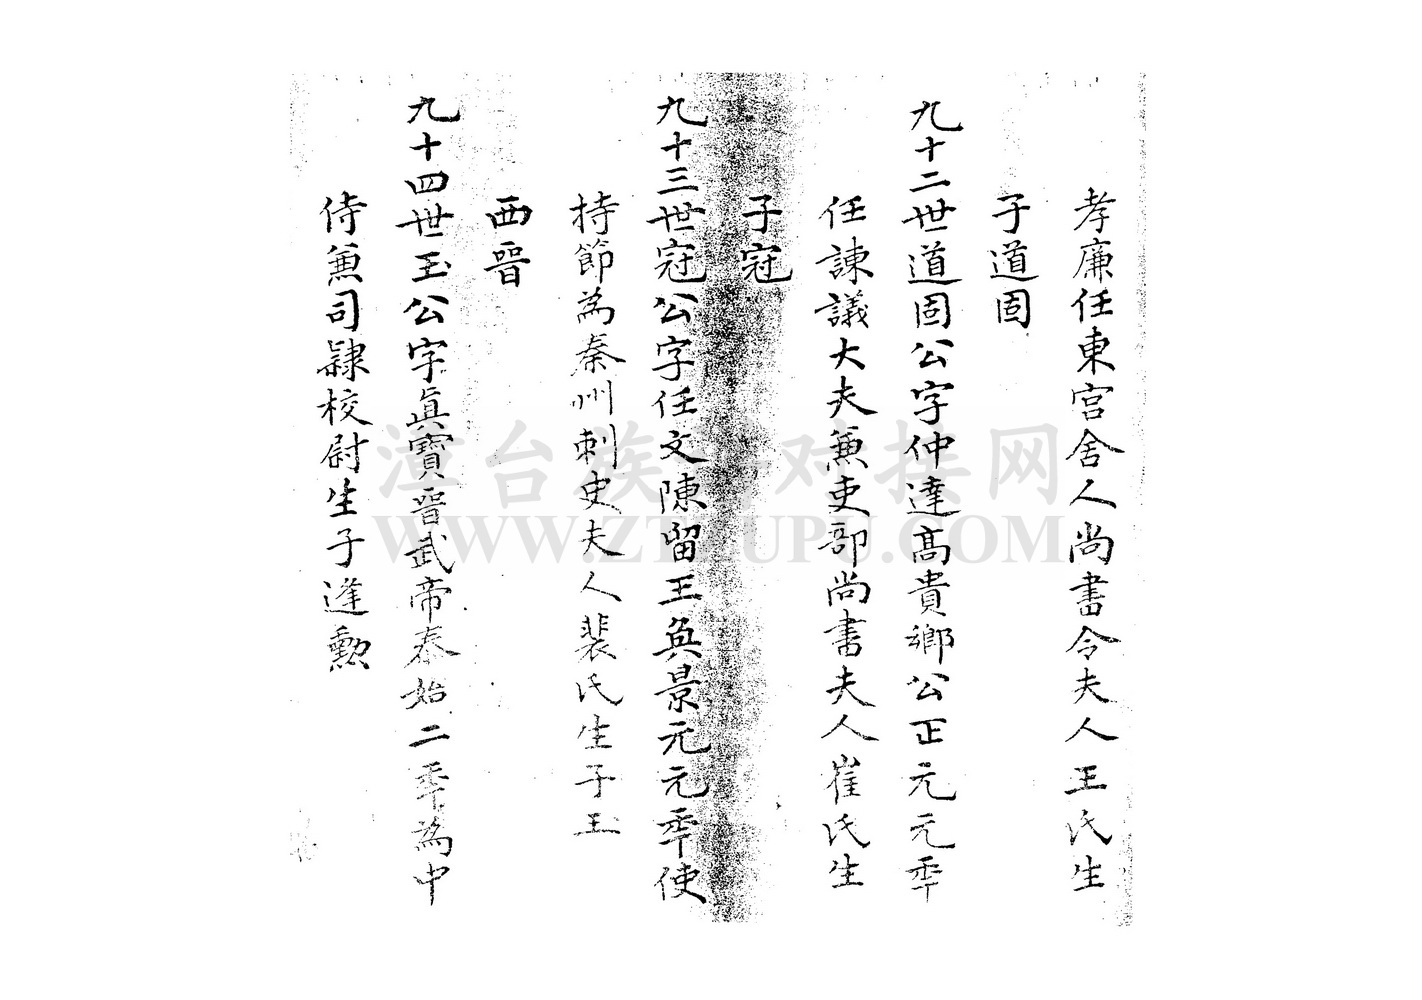 孝廉任東宮舍人尚書令夫人王氏生
子道固
九十二世道固公字仲達高貴鄉公正元元年
任諫議大夫兼吏部尚書夫人崔氏生
子冠
九十三世冠公字任文陳留王奐景元元年使
持節為秦州刺史夫人裴氏生子玉
西晉
九十四世玉公字眞寶晉武帝泰始二年為中
侍兼司隸校尉生子逢勲
漳台族谱对接网
WWW.ZTZUPU.COM